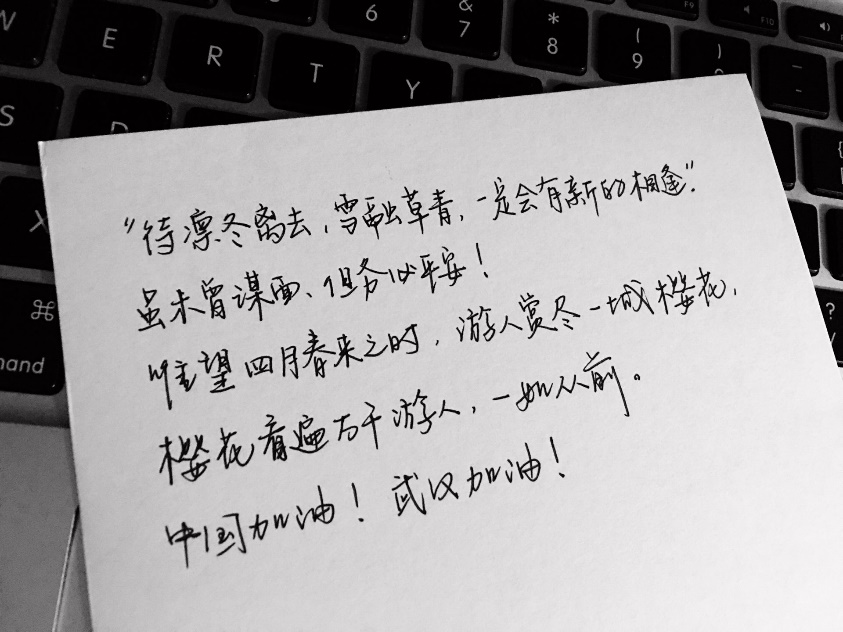 W
E
R
T
Y
6
&
7
*
8
(
9
)
F9
F10
S
D
X
⌘
mand
{
?
“待凛冬离去,雪融草青,一定会有新的相逢”.
虽未曾谋面、但务必平安!
唯望四月春来之时,游人赏尽一城樱花,
樱花看遍万千游人,一如从前。
中国加油! 武汉加油!